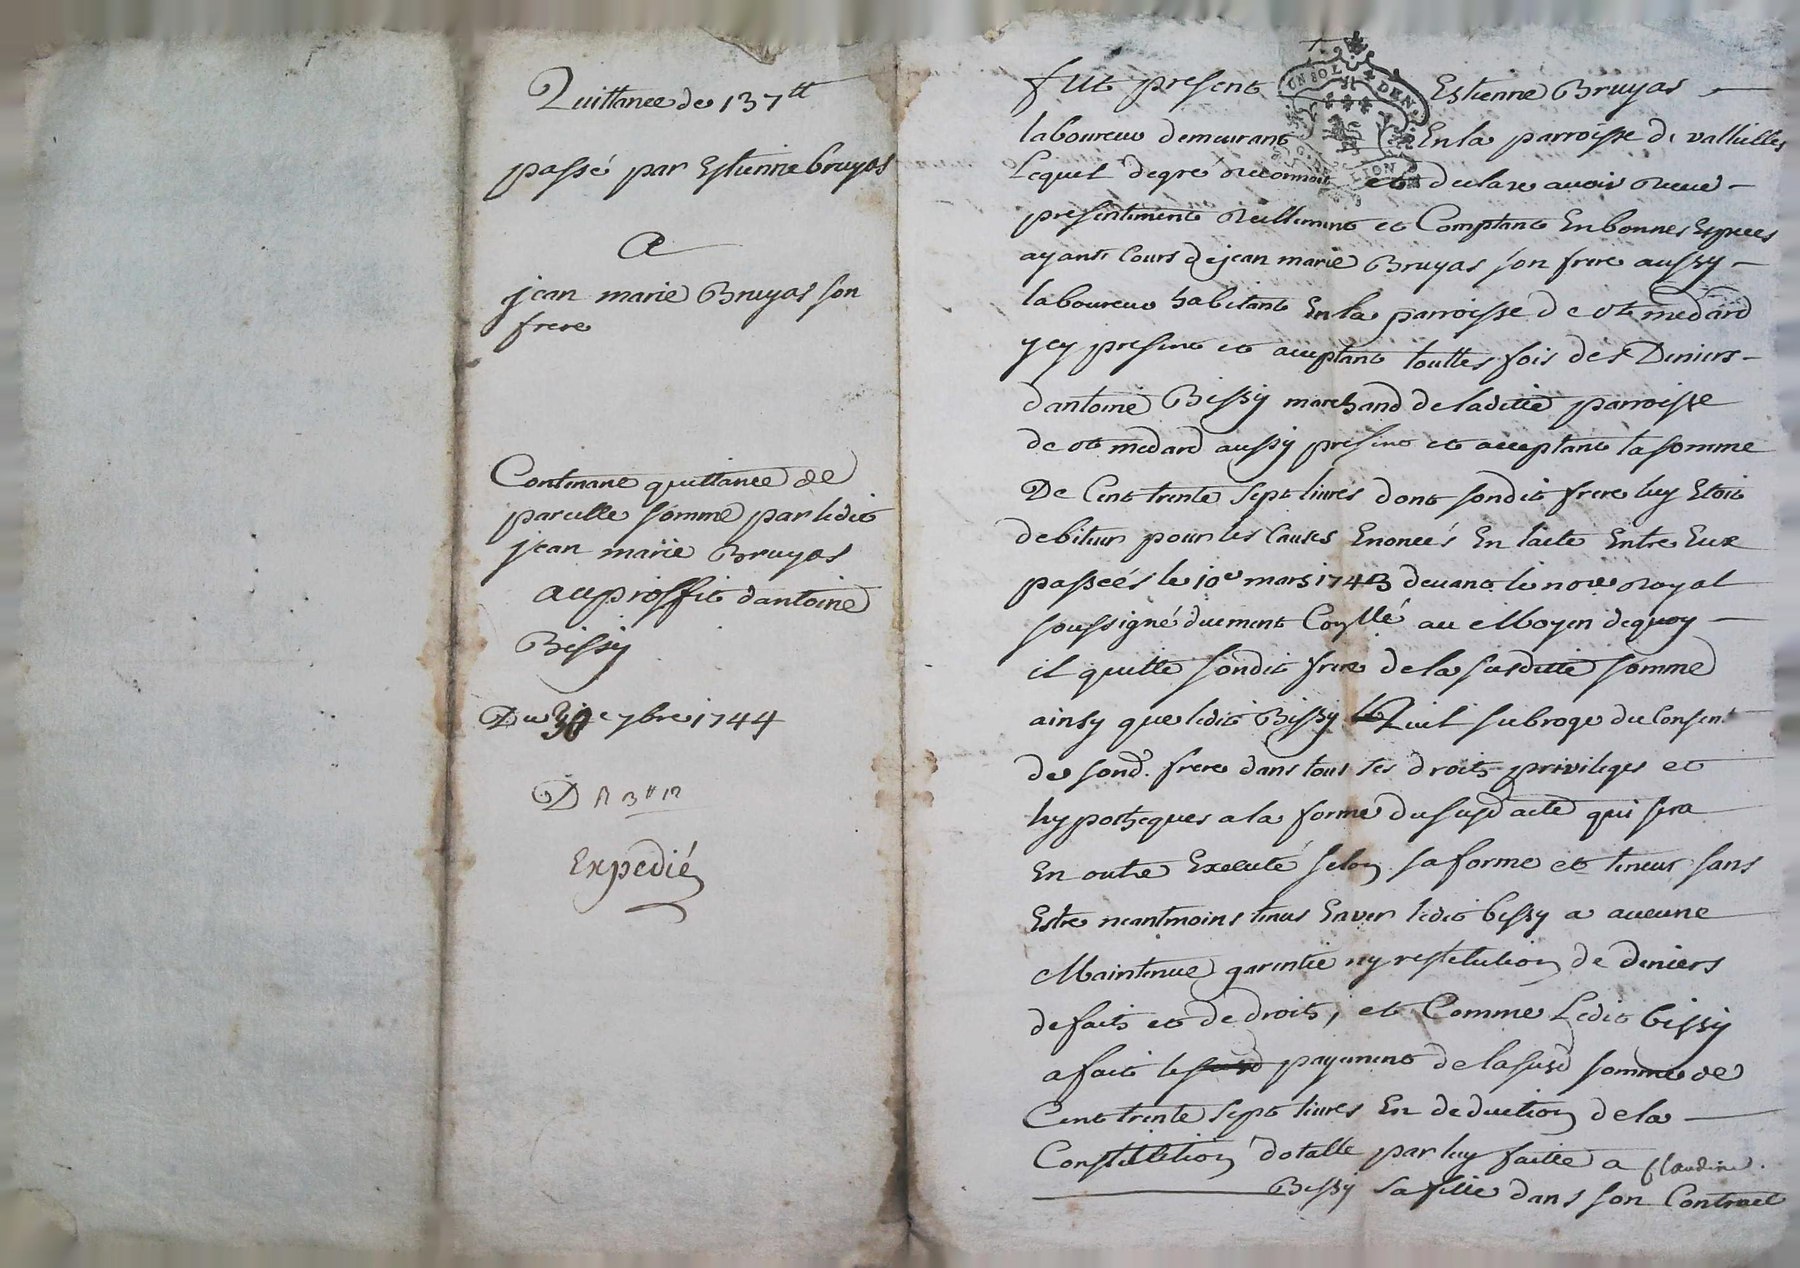 Quittance de 137 tt
passé par Estienne bruyas
A
jean marie Bruyas son
frere
Contenant quittance de
pareille somme par ledit
jean marie Bruyas
au proffit dantoine
Bissy
Du 30 e 7bre 1744
Expedié
fut present Estienne Bruyas
laboureur demeurant En la parroisse de valleilles
Lequel degre reconnoit et declare avoir receu
presentement reellement et Comptant En bonnes Especes
ayant Cours de jean marie Bruyas son frere aussy
laboureur habitant En la parroisse de st medard
ycy present et acceptant touttes fois des Deniers
dantoine Bissy marchand de laditte parroisse
de st medard aussy present et acceptant la somme
De Cent trente sept livres dont sondit frere luy Etoit
debiteur pour les Causes Enoncés En lacte Entre Eux
passéés le 10e mars 1743 devant le nore Royal
soussigné duement Conllé au Moyen dequoy
il quitte sondit frere de la susditte somme
ainsy que ledit Bissy Quil subroge du Consent
de sond. frere dans tous ses droits privileges et
hypotheques a la forme du susd acte qui sera
En outre Executé selon sa forme et teneur sans
Estre neantmoins tenus Enver ledit bissy a aucune
Maintenue garentie ny restitution de deniers
de faits et de droits, et Comme Ledit bissy
a fait le payement de la susd somme de
Cent trente sept livres En deduction de la
Constitution dotalle par luy faitte a Claudine
Bissy sa fille dans son Contract
UN SOL 4 DEN.
LION